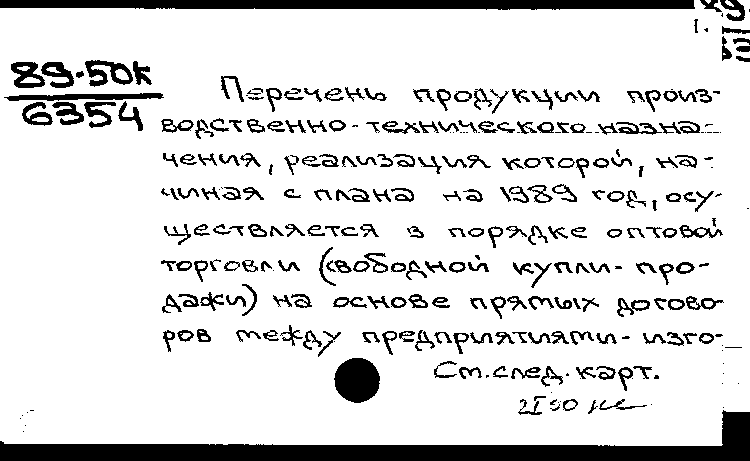 1.
89-50к
6354
Перечень продукции произ-
водственно-технического назна-
чения, реализация которой, на-
чиная с плана на 1989 год, осу-
ществляется в порядке оптовой
торговли (свободной купли-про-
дажи) на основе прямых догово-
ров между предприятиями-изго-
См. след. карт.